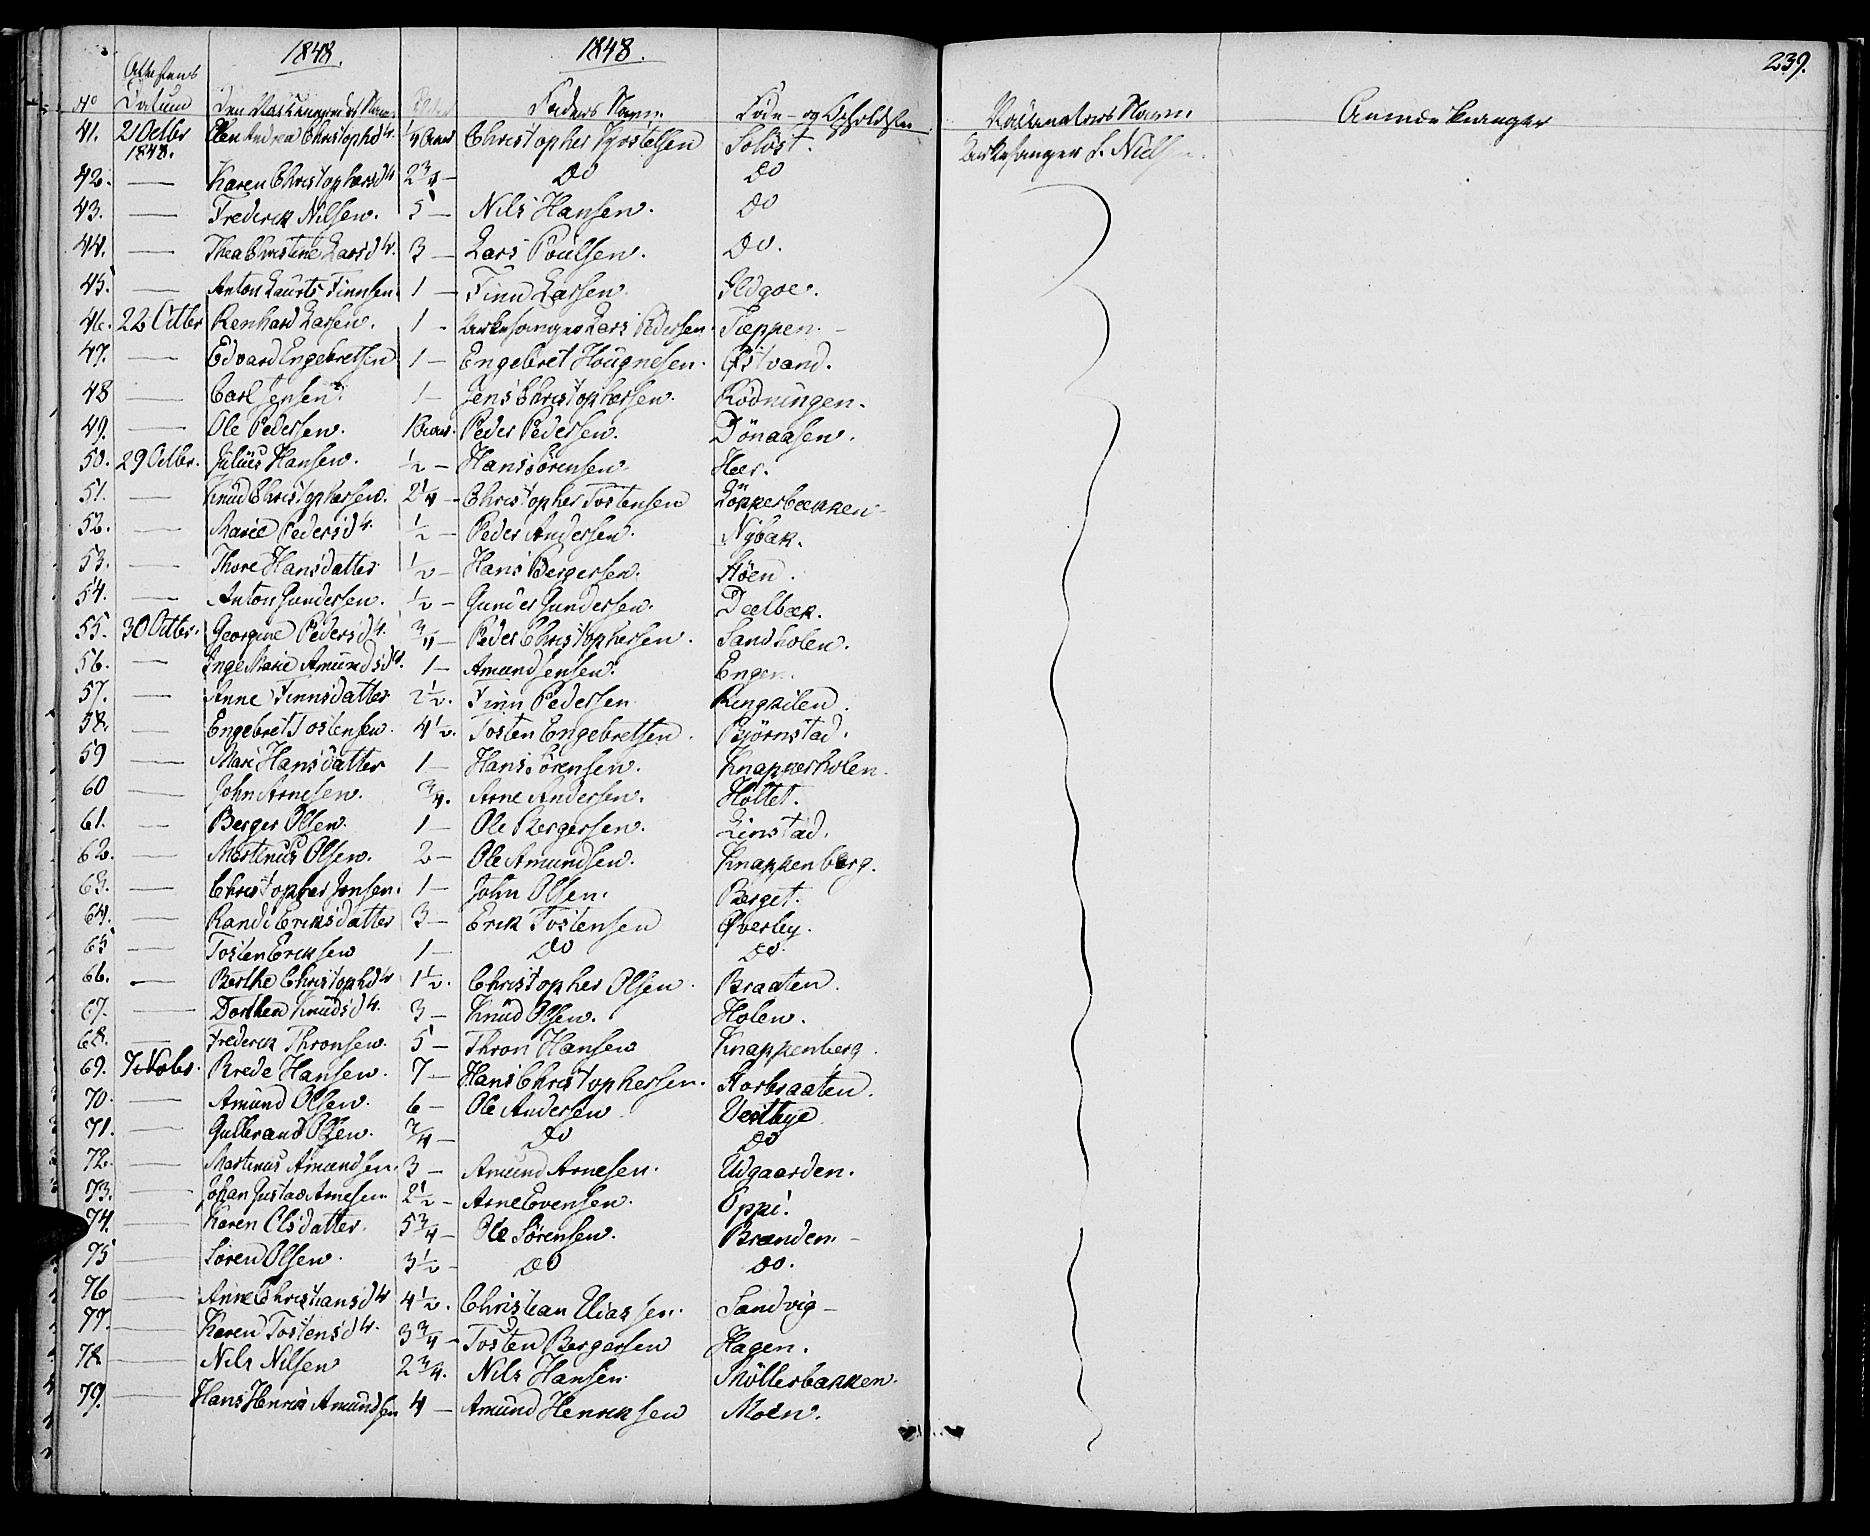 1848. 1848. 239.
No Attestens Datum Den Vaccineredes Navn Alder Faders Navn Føde- og Opholdsted Vaccinateurs Navn Anmærkninger
41. 21 Octbr 1848. Ellen Andrea Christophd4. Christopher Kjostelsen Solöst. Kirkesanger L. Nielsen
42. — Karen Christophersd4 2 3/4 — Do Do
43. — Frederik Nilsen. 5 — Nils Hansen. Do
44. — Thea Christine Larsd4. 3 — Lars Poulsen. Do.
45. — Anton Laurits Finnsen. 1 — Finn Larsen.
46. 22 Octbr Renhard Larsen. 1 - Kirkesanger Lars Pedersen. Tæppen. —
47. — Edvard Engebretsen 1 — Engebret Hougnesen. Östvand.
48 — Carl Jensen. 1 — Jens Christophersen. Rödningen.
49. — Ole Pedersen. Peder Pedersen. Dönaasen.
50. 29 Octbr. Julius Hansen. 1/2 — Hans Sörensen. Heer.
51. — Knud Christophersen. 2 1/4 — Christopher Tostensen Löpperbækken
52. — Marie Pedersd4. 1/2 — Peder Andersen. Nybak.
53. — Thore Hansdatter 1/2 — Hans Bergersen. Höen.
54. — Anton Gundersen. 1/2 — Gunder Gundersen. Dælbæk.
55. 30 Octbr. Georgine Pedersd4. 3/4 — Peder Christophersen. Sandholen.
56. — Inge Marie Amundsd4. 1 — Amund Jensen. Engen.
57. — Anne Finnsdatter 2 1/2. Finn Pedersen Ringkilen.
58. — Engebret Tostensen. 4 1/2. Tosten Engebretsen. Björnstad.
59 — Mari Hansdatter 1 — Hans Sörensen. Knapperholen.
60 — John Arnesen. 3/4. Arne Andersen. Holtet.
61. — Berger Olsen. 1 — Ole Bergersen. Linstad.
62. — Martinus Olsen. 2 — Ole Amundsen. Knappenberg.
63. — Christopher Jonsen. 1 — John Olsen. Berget.
64. — Randi Eriksdatter 3 — Erik Tostensen Øverby.
65 — Tosten Eriksen 1 — Do Do.
66. — Berthe Christophd4 1 1/2. Christopher Olsen. Braaten.
67. — Dorthea Knudsd4. 3 — Knud Olsen. Holen.
68. — Frederik Thronsen. 5 — Thron Hansen Knappenberg.
69. 7 Novbr. Brede Hansen. 7 — Hans Christophersen. Storbraaten.
70. — Amund Olsen. 6 — Ole Andersen Vestbye
71. — Gulbrand Olsen. 3/4 — Do Do
72. — Martinus Amundsen. 3 — Amund Arnesen. Udgaarden.
73. — Johan Gustav Arnesen 2 1/2 — Arne Evensen. Oppi.
74. — Karen Olsdatter. 5 3/4 — Ole Sörensen. Branden. —
75 — Sören Olsen. 3 1/2 — Do Do.
76 — Anne Christiansd4 4 1/2. Christian Eliassen. Sandvig —
77. — Karen Tostensd4. 3 3/4 — Tosten Bergersen Hagen.
78 — Nils Nilsen 2 3/4. Nils Hansen Möllerbakken.
79. — Hans Henrik Amundsen 4 — Amund Henriksen Moen.